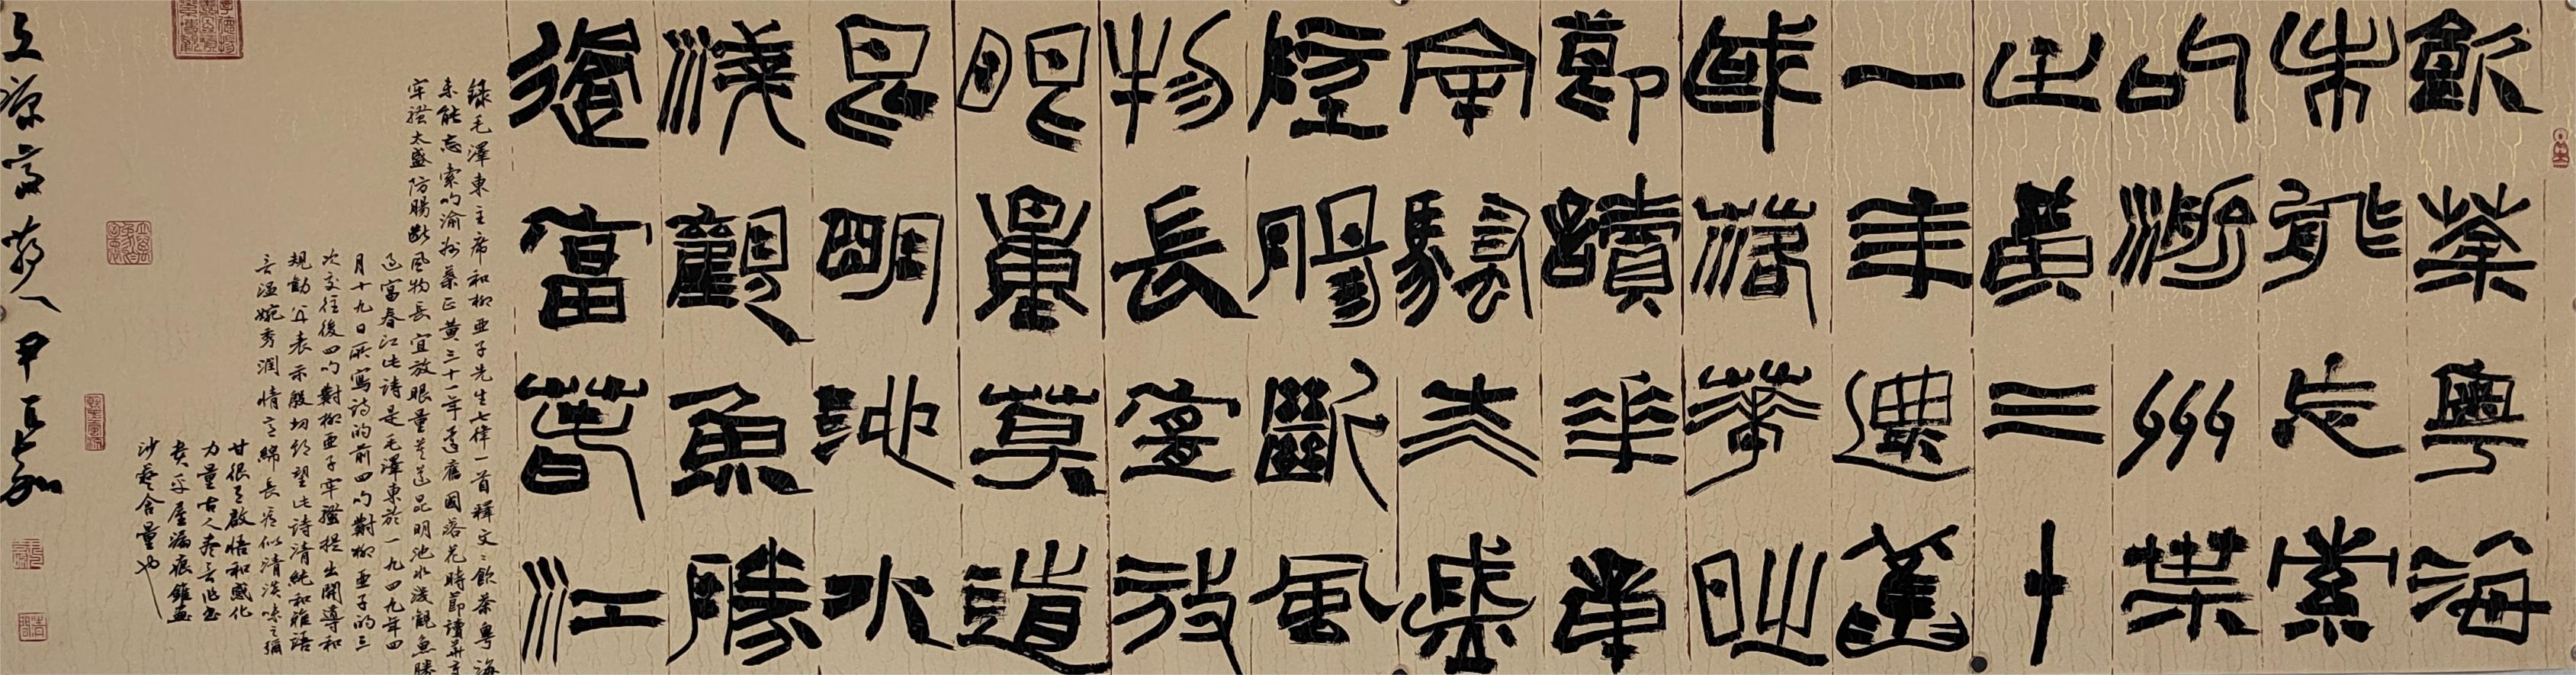 飲茶粤海
未能忘索
句渝州葉
正黄三十
一年還舊
國落花時
節讀華章
牢騷太盛
防腸斷風
物長宜放
眼量莫道
昆明池水
淺觀魚勝
過富春江
錄毛澤東主席和柳亞子先生七律一首釋文:飲茶粤海
未能忘索句渝州葉正黄三十一年還舊國落花時節讀華章
牢騷太盛防腸斷風物長宜放眼量莫道昆明池水淺觀魚勝
過富春江此詩是毛澤東於一九四九年四
月十九日所寫詩的前四句對柳亞子的三
次交往後四句對柳亞子牢騷提出開導和
規勸并表示殷切期望此詩清純和雅語
言溫婉秀潤情意綿長看似清淡味之彌
甘很有啟悟和感化
力量古人言作書
貴乎屋漏痕錐畫
沙含量也